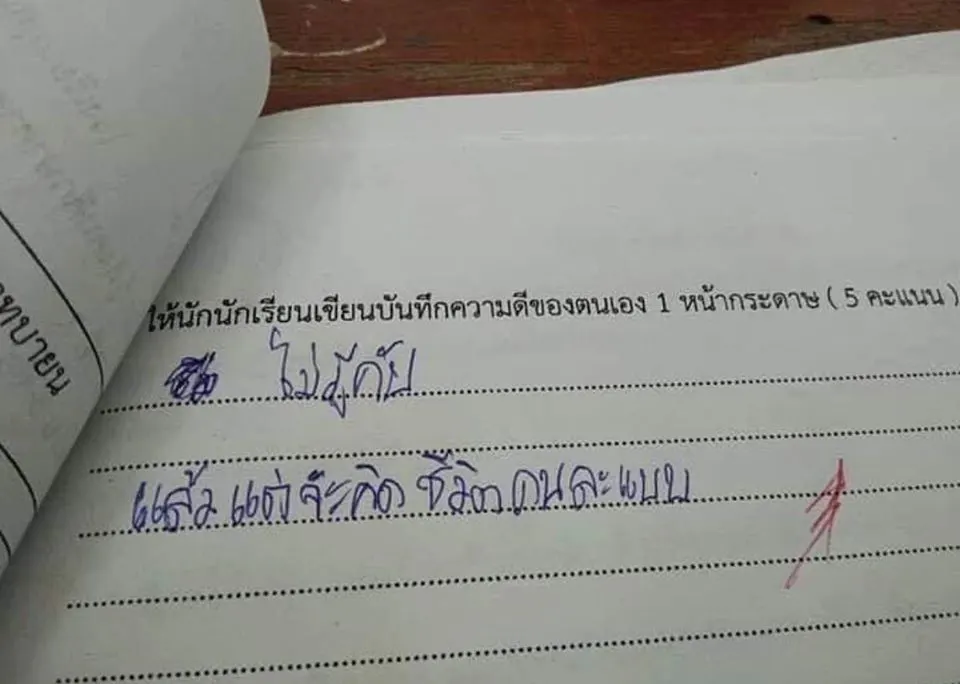 ให้นักนักเรียนเขียนบันทึกความดีของตนเอง 1 หน้ากระดาษ ( 5 คะแนน )
ไม่รู้คับ
แล้วแต่จะคิด ชีวิตคนละแบบ